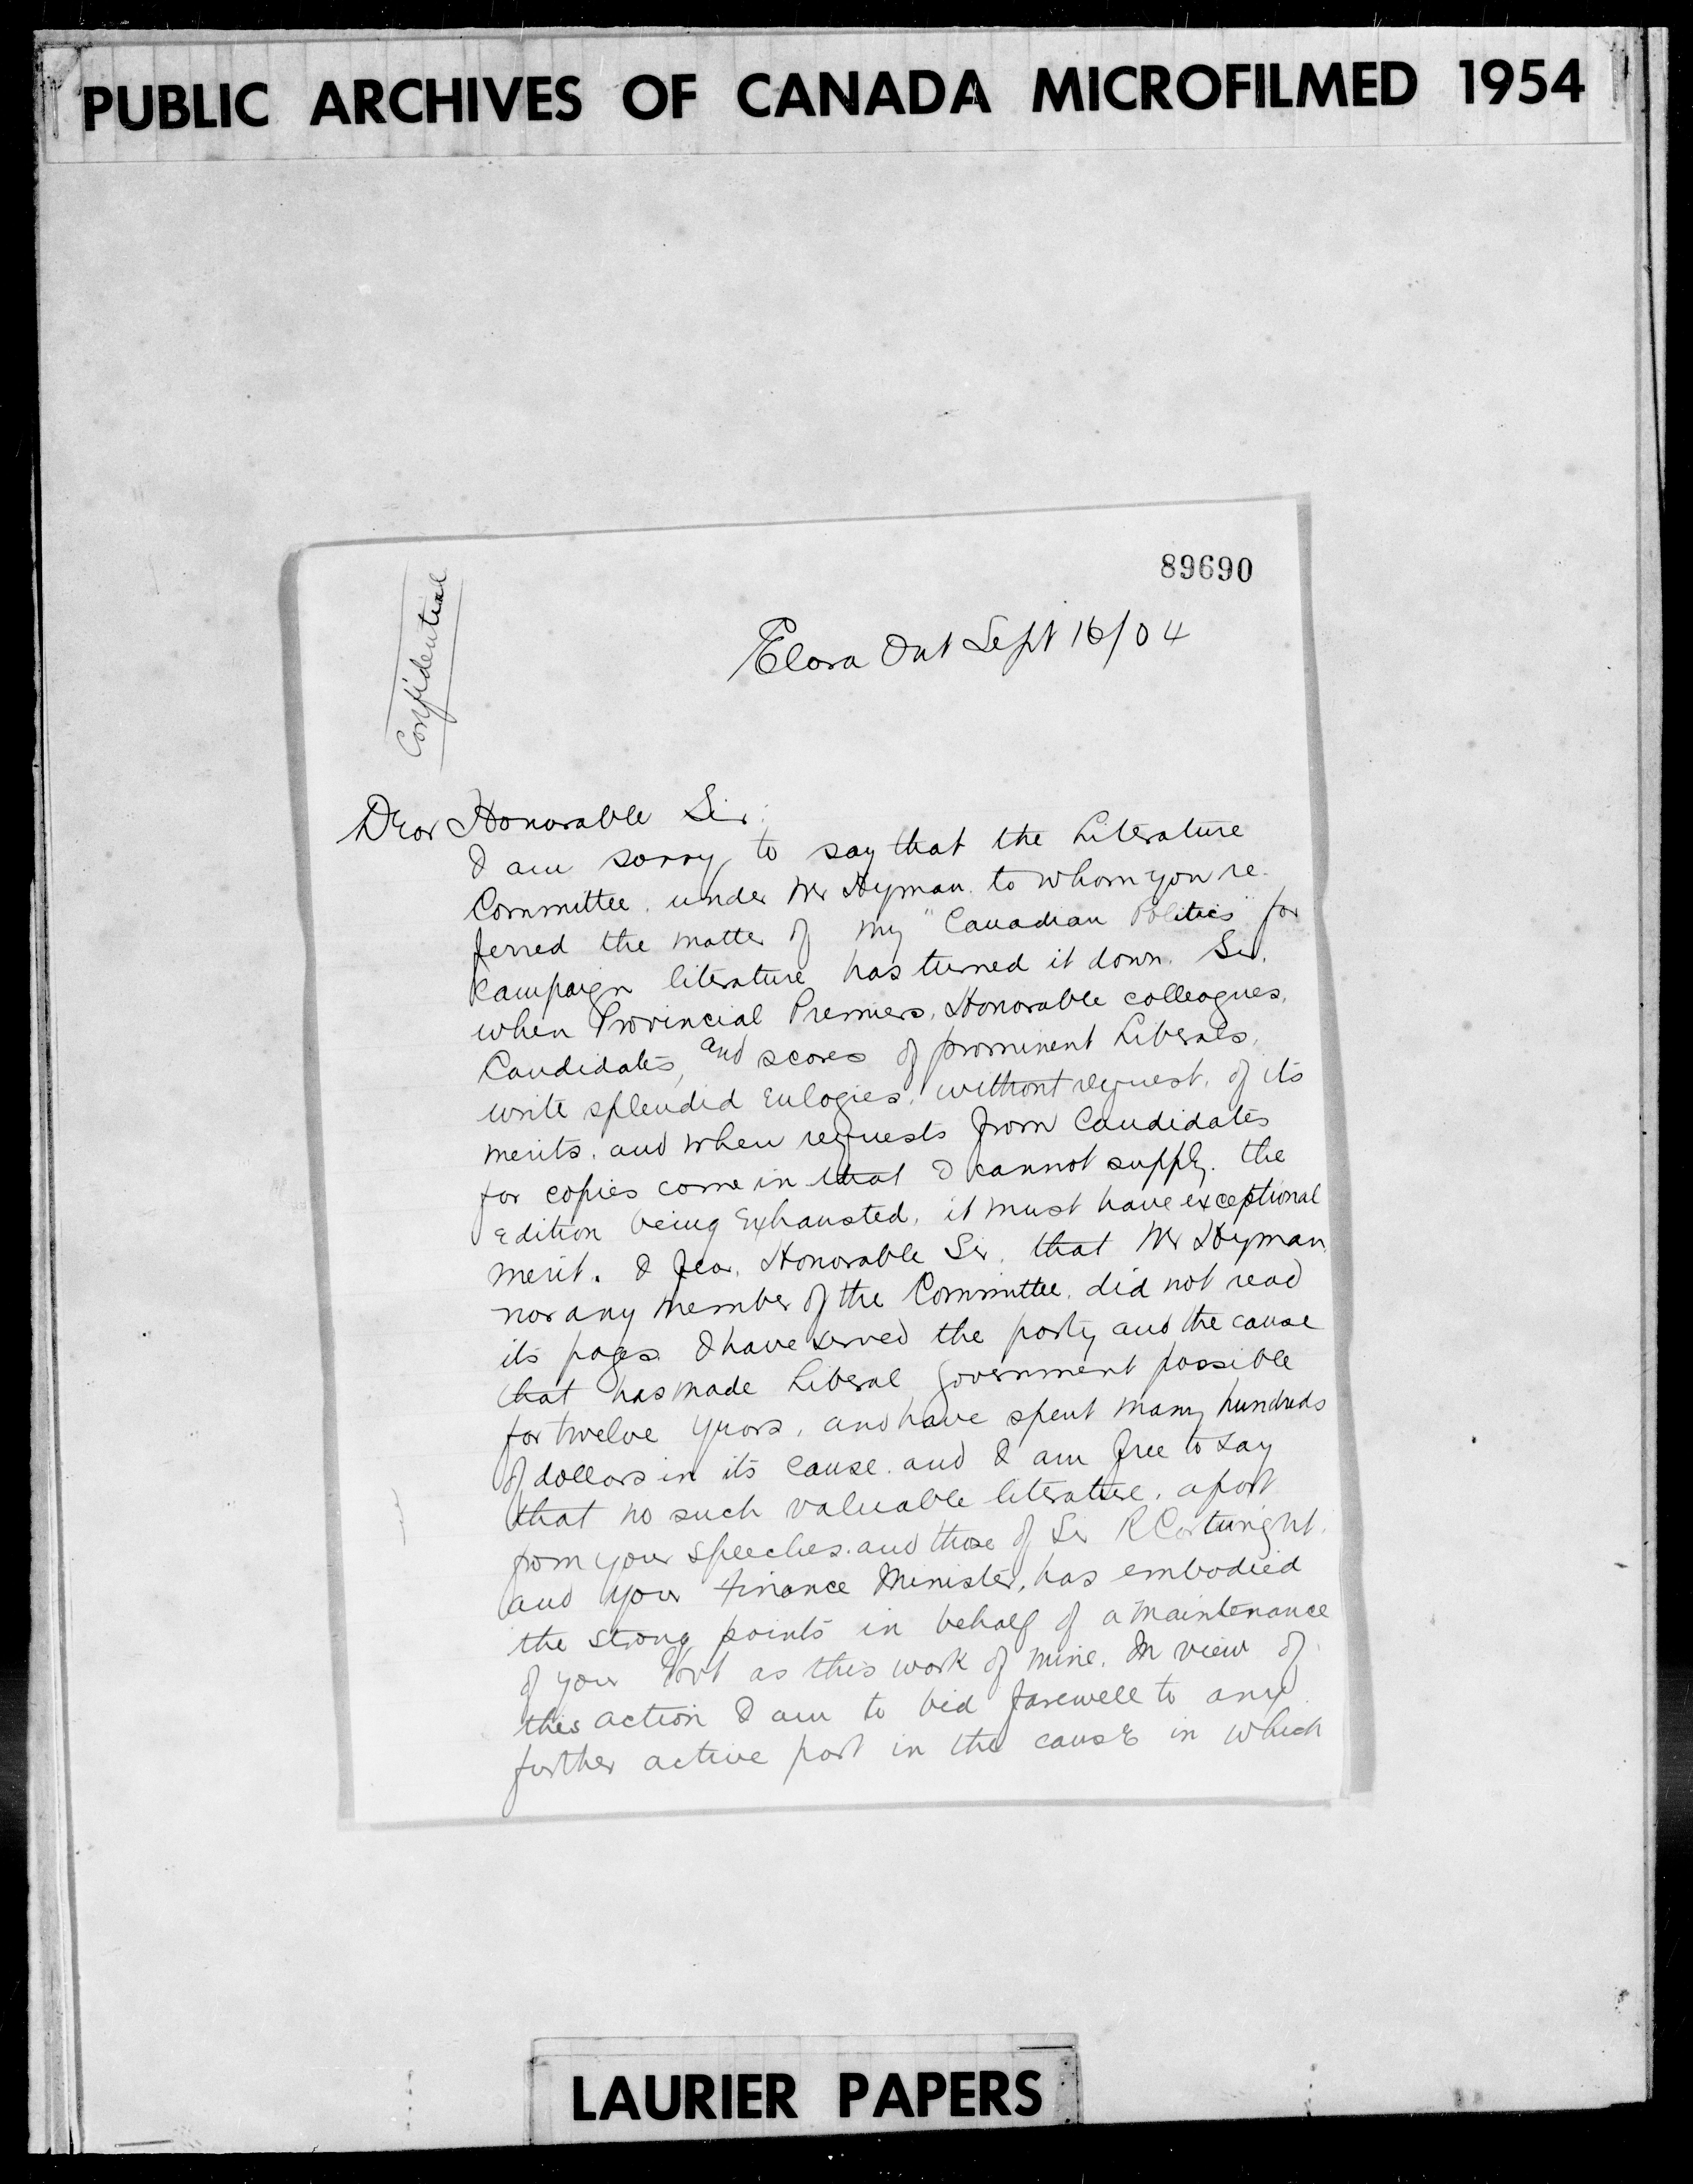 PUBLIC ARCHIVES OF CANADA MICROFILMED 1954
89690
Confidential
Elora Ont Sept 16/04
Dear Honorable Sir:
I am sorry to say that the Literature
Committee, under Mr Hyman, to whom you re-
ferred the matter of my "Canadian Politics" for
Kampaign literature has turned it down. Sir,
when Provincial Premiers, Honorable colleagues,
Candidates, and scores of prominent Liberals,
write splendid Eulogies, without request, of its
merits, and when requests from Candidates
for copies come in that I cannot supply, the
Edition being Exhausted, it must have exceptional
merit. I fear, Honorable Sir, that Mr Hyman,
nor any member of the Committee, did not read
its pages. I have served the party, and the cause
that has made Liberal Government possible
for twelve years, and have spent many hundreds
of dollars in its cause, and I am free to say
that no such valuable literature, apart
from your speeches, and those of Sir R Cartwright,
and your Finance Minister, has embodied
the strong points in behalf of a maintenance
of your Govt as this work of mine. In view of
this action I am to bid farewell to any
further active part in the cause in which
LAURIER PAPERS